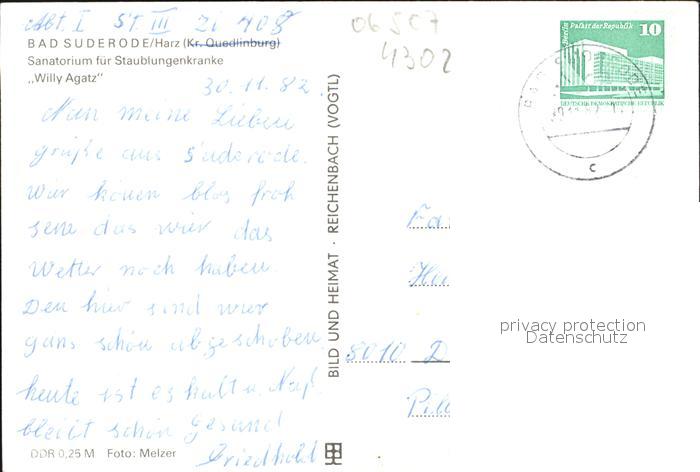 Abt. I ST. III Zi 408
BAD SUDERODE/Harz (Kr. Quedlinburg)
Sanatorium für Staublungenkranke
„Willy Agatz"
30.11.82.
Nun meine Lieben
grüße aus Suderode.
Wür könen blos froh
sene das wür das
Wetter noch haben.
Den hür sind wür
gans schön abgeschoben
heute ist es kalt u. Naß.
bleibt schön gesund
Friedhold
DDR 0,25 M Foto: Melzer
BILD UND HEIMAT · REICHENBACH (VOGTL)
4302
Berlin Palast der Republik 10
DEUTSCHE DEMOKRATISCHE REPUBLIK
c
Fa
8010 D
privacy protection
Datenschutz